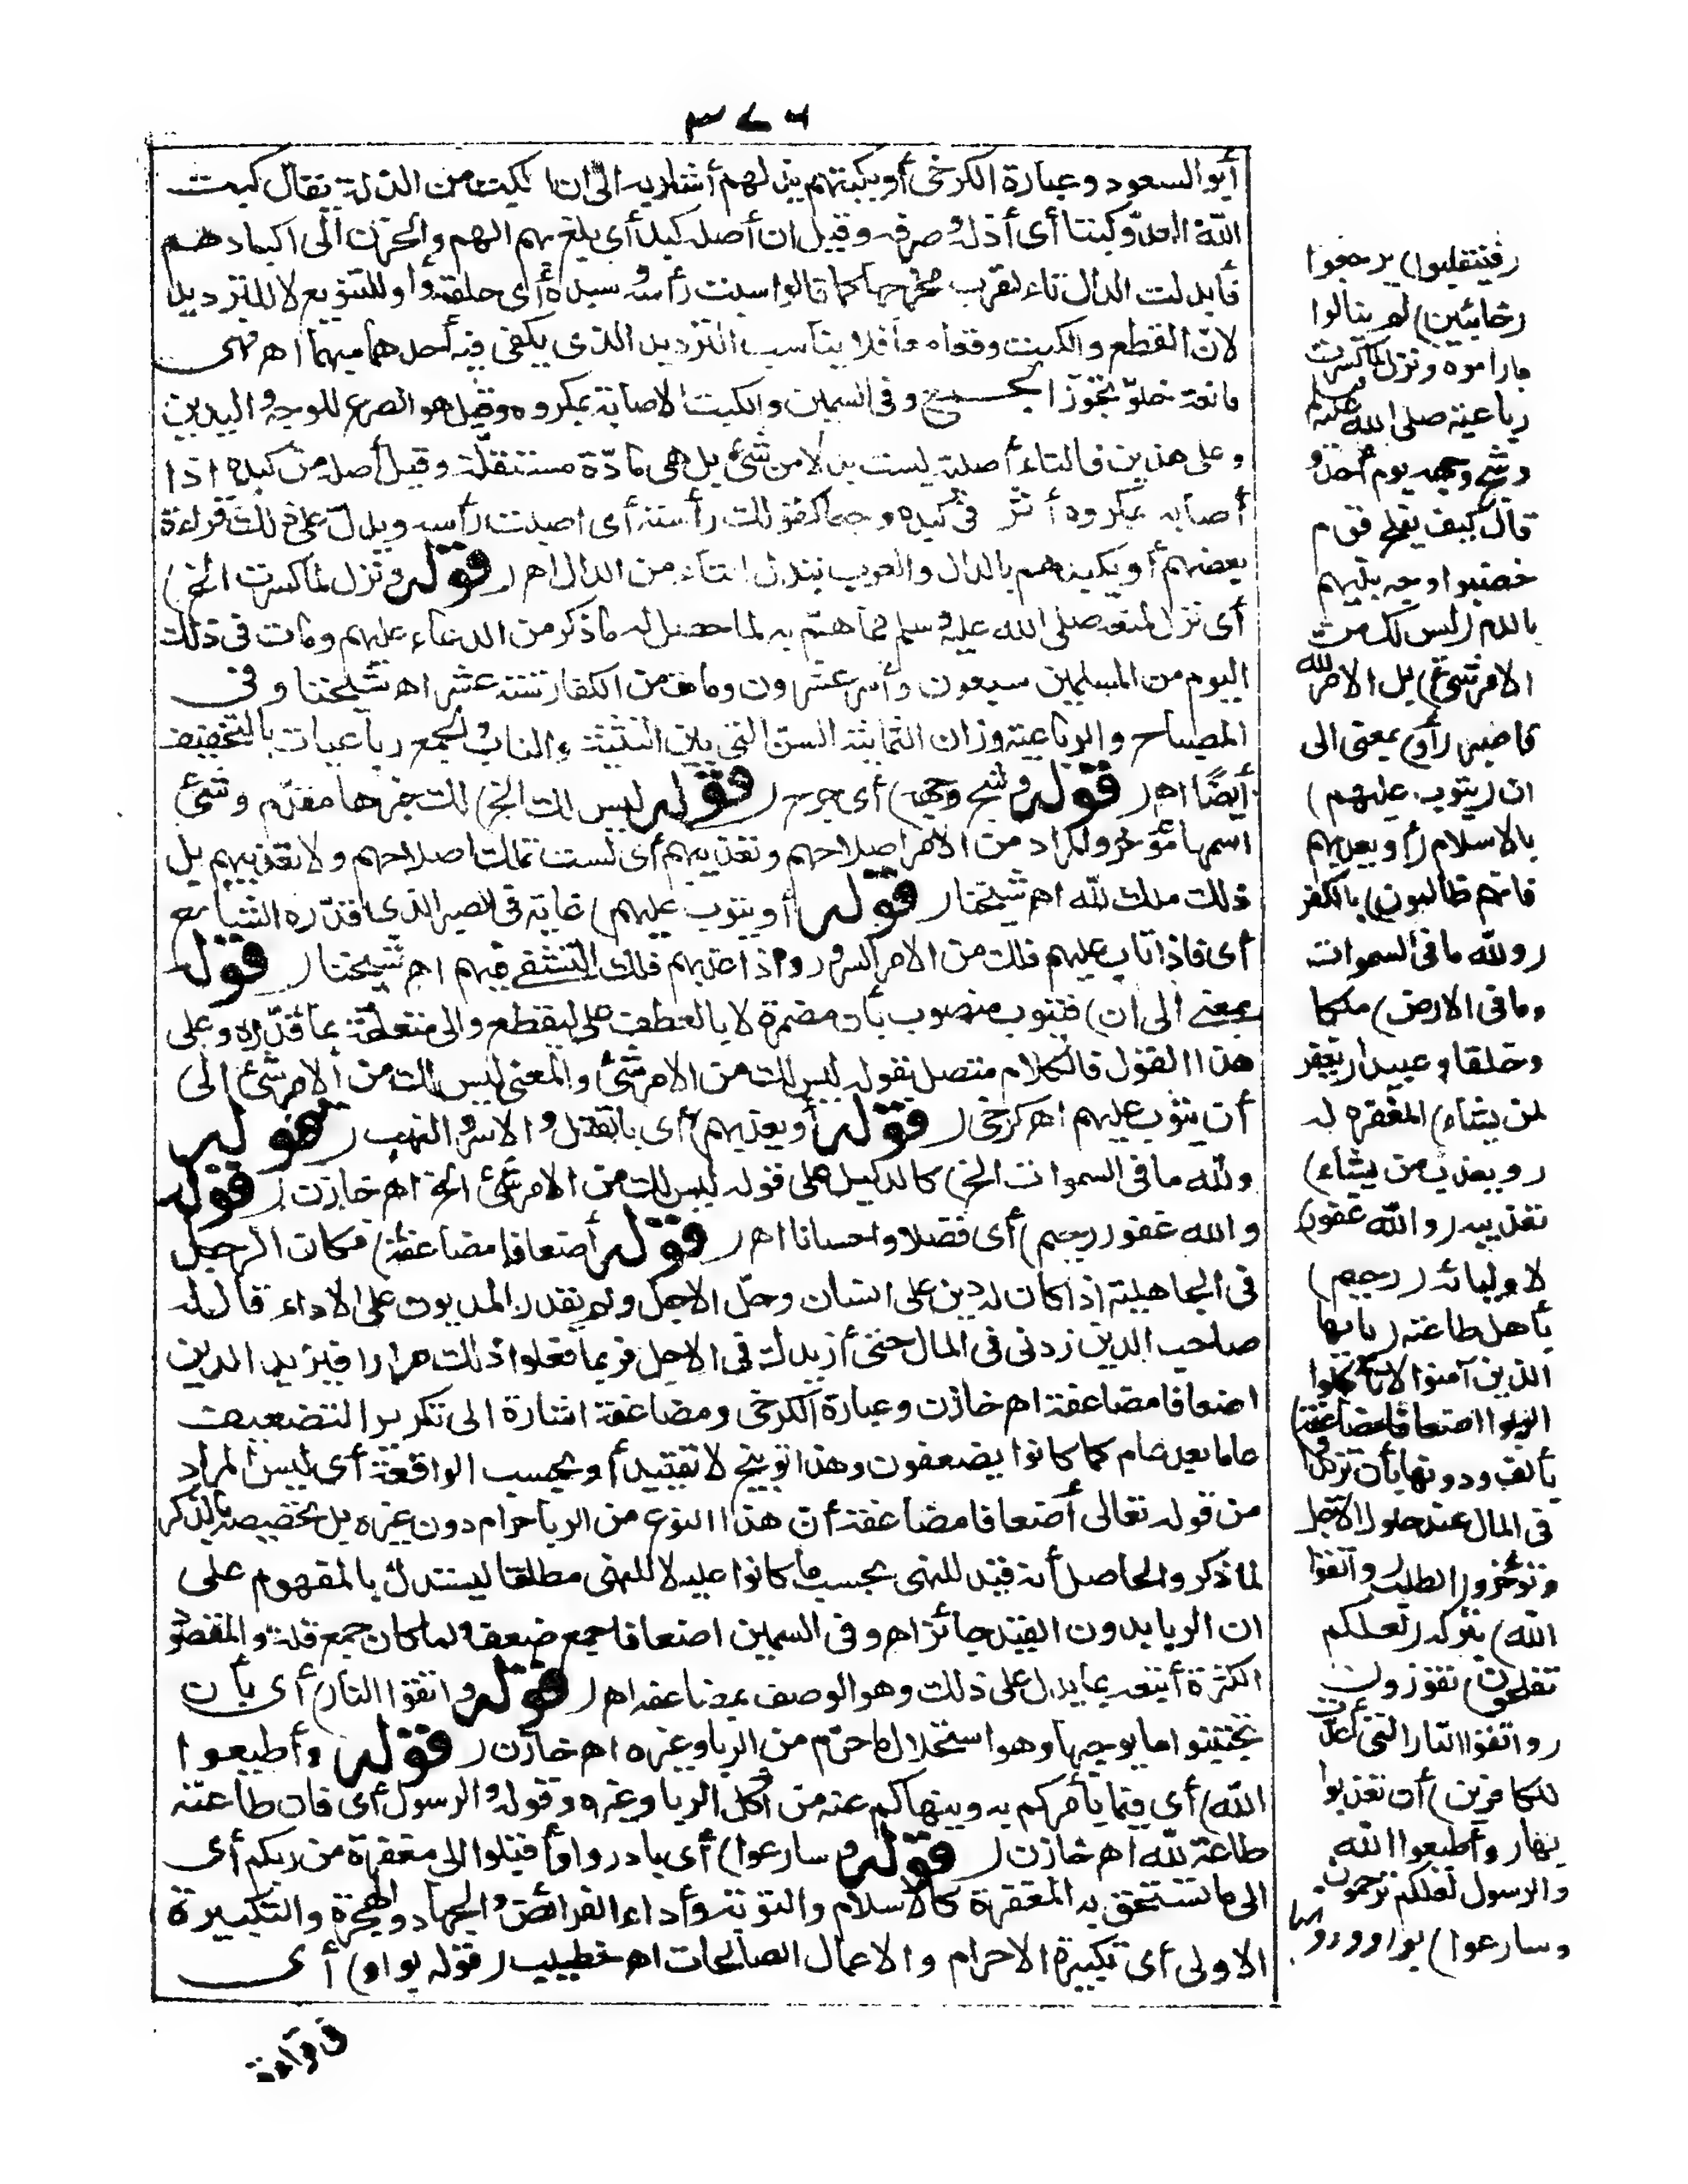 ٣٧٦
أبو السعود وعبارة الكرخى أو يكبتهم يذلهم أشار به الى ان الكبت من الذلة يقال كبت
الله العدو كبتا أى أذله وصرفه وقيل ان أصله كبد أى بلغ بهم الهم والحزن الى اكبادهم
فأبدلت الدال تاء لقرب مخرجها كما قالوا سبت رأسه وسبده أى حلقه وأو للتنويع لا للترديد
لان القطع والكبت وقعا معا فلا يناسب الترديد الذى يكفى فيه أحدهما مبهما اهـ فهى
مانعة خلو تجوز الجمع وفى السمين والكبت الاصابة بمكروه وقيل هو الصرع للوجه واليدين
وعلى هذين فالتاء أصلية ليست بدلا من شئ بل هى مادة مستقلة وقيل أصله من كبده اذا
أصابه بمكروه أثر فى كبده وجعا كقولك رأسته أى اصبت رأسه ويدل على ذلك قراءة
بعضهم أو يكبدهم بالدال والعرب تبدل التاء من الدال اهـ (قوله ونزل لما كسرت الخ)
أى نزل لمنعه صلى الله عليه وسلم مما هم به لما حصل له ما ذكر من الدعاء عليهم ومات فى ذلك
اليوم من المسلمين سبعون وأسر عشرون ومات من الكفار ستة عشر اهـ شيخنا وفى
المصباح والرباعية وزان الثمانية السن التى بين الثنية والناب والجمع رباعيات بالتخفيف
أيضًا اهـ (قوله وشج وجهه) أى جرح (قوله ليس لك الخ) لك خبرها مقدم وشئ
اسمها مؤخر والمراد من الامر اصلاحهم وتعذيبهم أى لست تملك اصلاحهم ولا تعذيبهم بل
ذلك ملك لله اهـ شيخنا (قوله أو يتوب عليهم) غاية فى الصبر الذى قدره الشارح
أى فاذا تاب عليهم فلك من الامر السرور واذا عذبهم فلك التشفى فيهم اهـ شيخنا (قوله
بمعنى الى ان) فيتوب منصوب بأن مضمرة لا بالعطف على ليقطع والى متعلقة بما قدره وعلى
هذا القول فالكلام متصل بقوله ليس لك من الامر شئ والمعنى ليس لك من الامر شئ الى
أن يتوب عليهم اهـ كرخى (قوله أو يعذبهم) أى بالقتل والاسر والنهب (قوله
ولله ما فى السموات الخ) كالدليل على قوله ليس لك من الامر شئ الخ اهـ خازن (قوله
والله غفور رحيم) أى فضلا واحسانا اهـ (قوله أضعافا مضاعفة) فكان الرجل
فى الجاهلية اذا كان له دين على انسان وحل الاجل ولم يقدر المديون على الاداء قال له
صاحب الدين زدنى فى المال حتى أزيدك فى الاجل فربما فعلوا ذلك مرارا فيزيد الدين
اضعافا مضاعفة اهـ خازن وعبارة الكرخى ومضاعفة اشارة الى تكرير التضعيف
عاما بعد عام كما كانوا يضعفون وهذا توبيخ لا تقييد أو بحسب الواقعة أى ليس المراد
من قوله تعالى أضعافا مضاعفة أن هذا النوع من الربا حرام دون غيره بل تخصيصه بالذكر
لما ذكر والحاصل أنه قيد للنهى بحسب ما كانوا عليه لا للنهى مطلقا ليستدل بالمفهوم على
ان الربا بدون القيد جائز اهـ وفى السمين اضعافا جمع ضعف ولما كان جمع قلة والمقصود
الكثرة أتبعه بما يدل على ذلك وهو الوصف بمضاعفه اهـ (قوله واتقوا النار) أى بأن
تجتنبوا ما يوجبها وهو استحلال ما حرم من الربا وغيره اهـ خازن (قوله وأطيعوا
الله) أى فيما يأمركم به وينهاكم عنه من أكل الربا وغيره وقوله والرسول أى فان طاعته
طاعة لله اهـ خازن (قوله وسارعوا) أى بادروا وأقبلوا الى مغفرة من ربكم أى
الى ما تستحق به المغفرة كالاسلام والتوبة وأداء الفرائض والجهاد والهجرة والتكبيرة
الاولى أى تكبيرة الاحرام والاعمال الصالحات اهـ خطيب (قوله بواو) أى
قراءة
(فينقلبوا) يرجعوا
(خائبين) لم ينالوا
ما راموه ونزل لما كسرت
رباعيته صلى الله عليه وسلم
وشج وجهه يوم أحد و
قال كيف يفلح قوم
خضبوا وجه نبيهم
بالدم (ليس لك من
الامر شئ) بل الامر لله
فاصبر (أو) بمعنى الى
ان (يتوب عليهم)
بالاسلام (أو يعذبهم
فانهم ظالمون) بالكفر
(ولله ما فى السموات
وما فى الارض) ملكا
وخلقا وعبيدا (يغفر
لمن يشاء) المغفرة له
(ويعذب من يشاء)
تعذيبه (والله غفور)
لاوليائه (رحيم)
بأهل طاعته (يا أيها
الذين آمنوا لا تأكلوا
الربوا اضعافا مضاعفة)
بألف ودونها بأن تزيدوا
فى المال عند حلول الاجل
وتؤخروا الطلب (واتقوا
الله) بتركه (لعلكم
تفلحون) تفوزون
(واتقوا النار التى أعدت
للكافرين) أن تعذبوا
بها (وأطيعوا الله
والرسول لعلكم ترحمون
وسارعوا) بواو ودونها